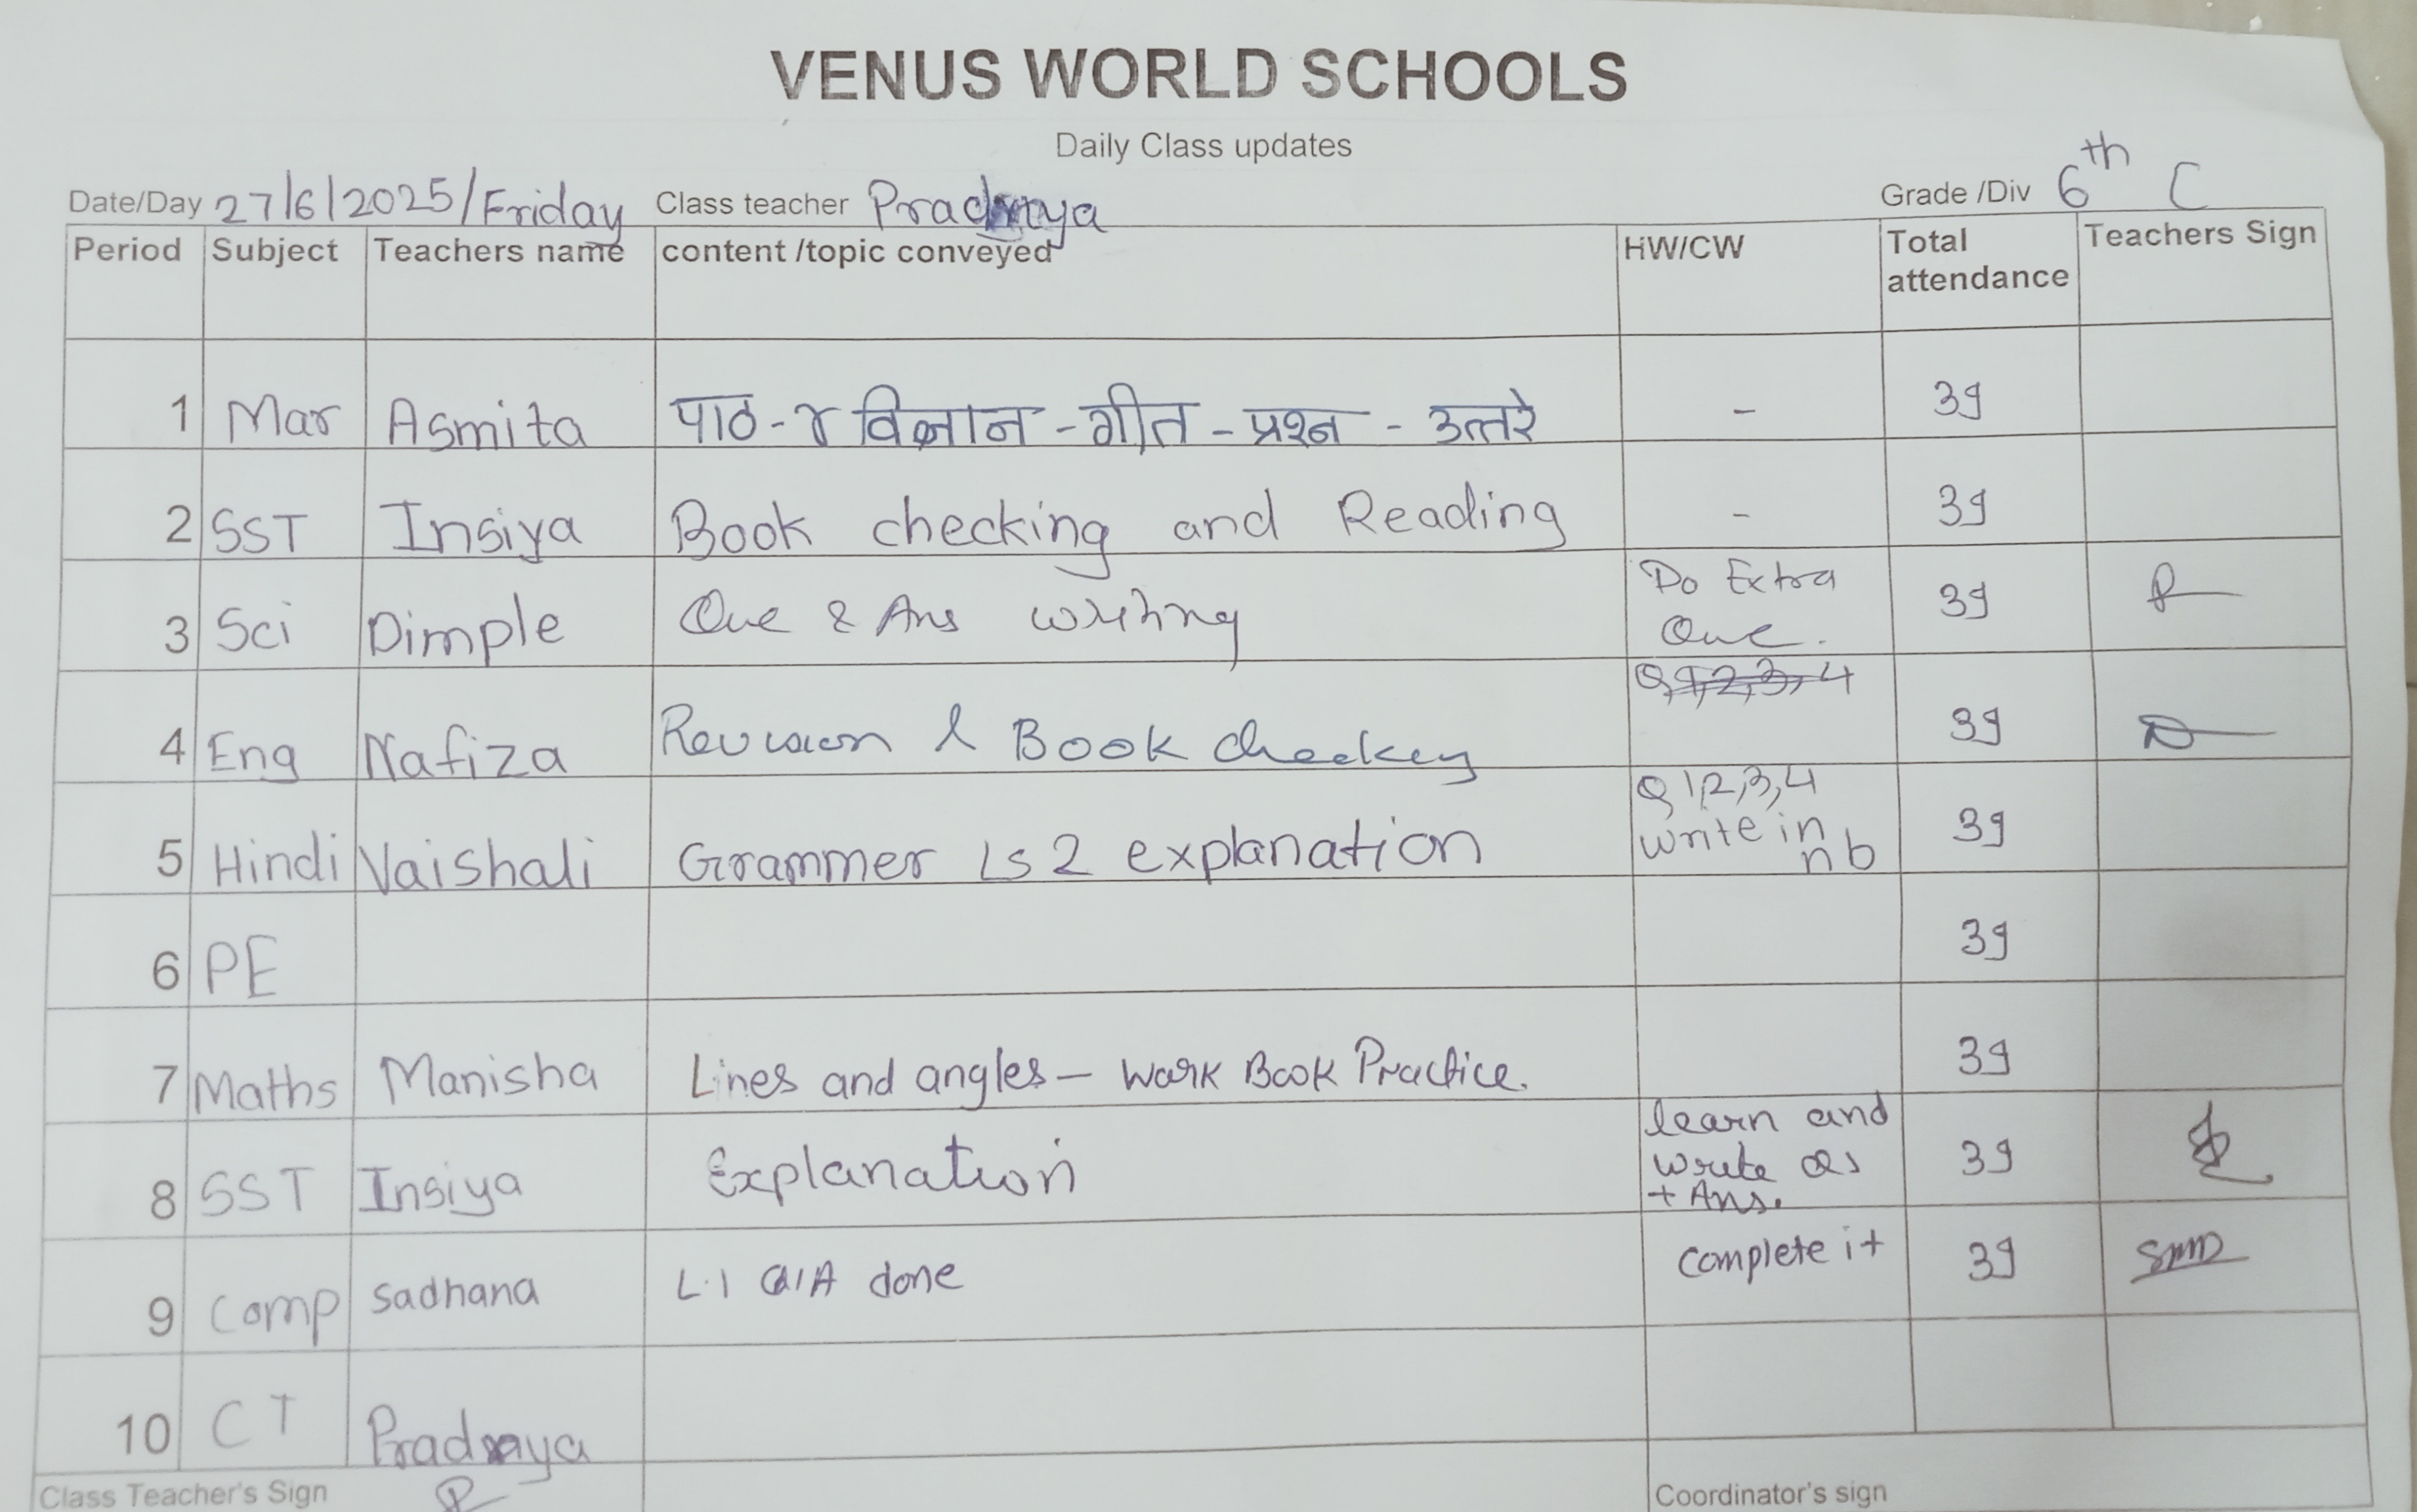 VENUS WORLD SCHOOLS
Daily Class updates
Date/Day 27/6/2025/Friday Class teacher Pradnya Grade /Div 6th C
Period Subject Teachers name content /topic conveyed HW/CW Total attendance Teachers Sign
1 Mar Asmita पाठ - ४ विज्ञान - गीत - प्रश्न - उत्तरे - 39
2 SST Insiya Book checking and Reading - 39
3 Sci Dimple Que & Ans writing Do Extra Que. 39
4 Eng Nafiza Revision & Book checking 39
5 Hindi Vaishali Grammer Ls 2 explanation Q 1,2,3,4 write in nb 39
6 PE 39
7 Maths Manisha Lines and angles – Work Book Practice. 39
8 SST Insiya Explanation learn and write Qs + Ans. 39
9 Comp Sadhana L.1 Q/A done complete it 39
10 CT Pradnya
Class Teacher's Sign Coordinator's sign